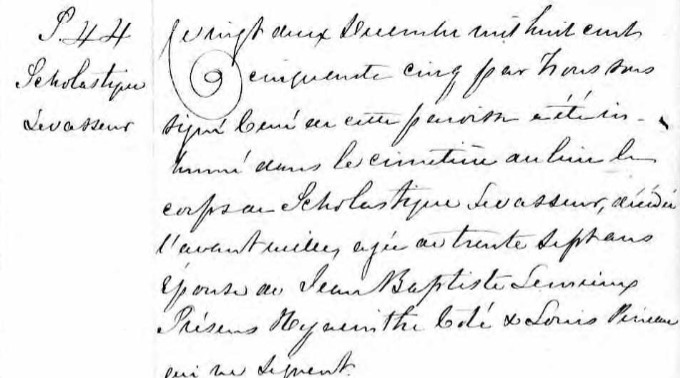 S. 44
Scholastique
Levasseur
Le vingt deux Decembre mil huit cent
cinquante cinq par Nous sous
signé Curé de cette paroisse a été in-
humé dans le cimetière du lieu le
corps de Scholastique Levasseur, décédée
l'avant veille, agée de trente sept ans
épouse de Jean Baptiste Lemieux
Présens Hyacinthe Coté & Louis Pineau
qui ne signent.